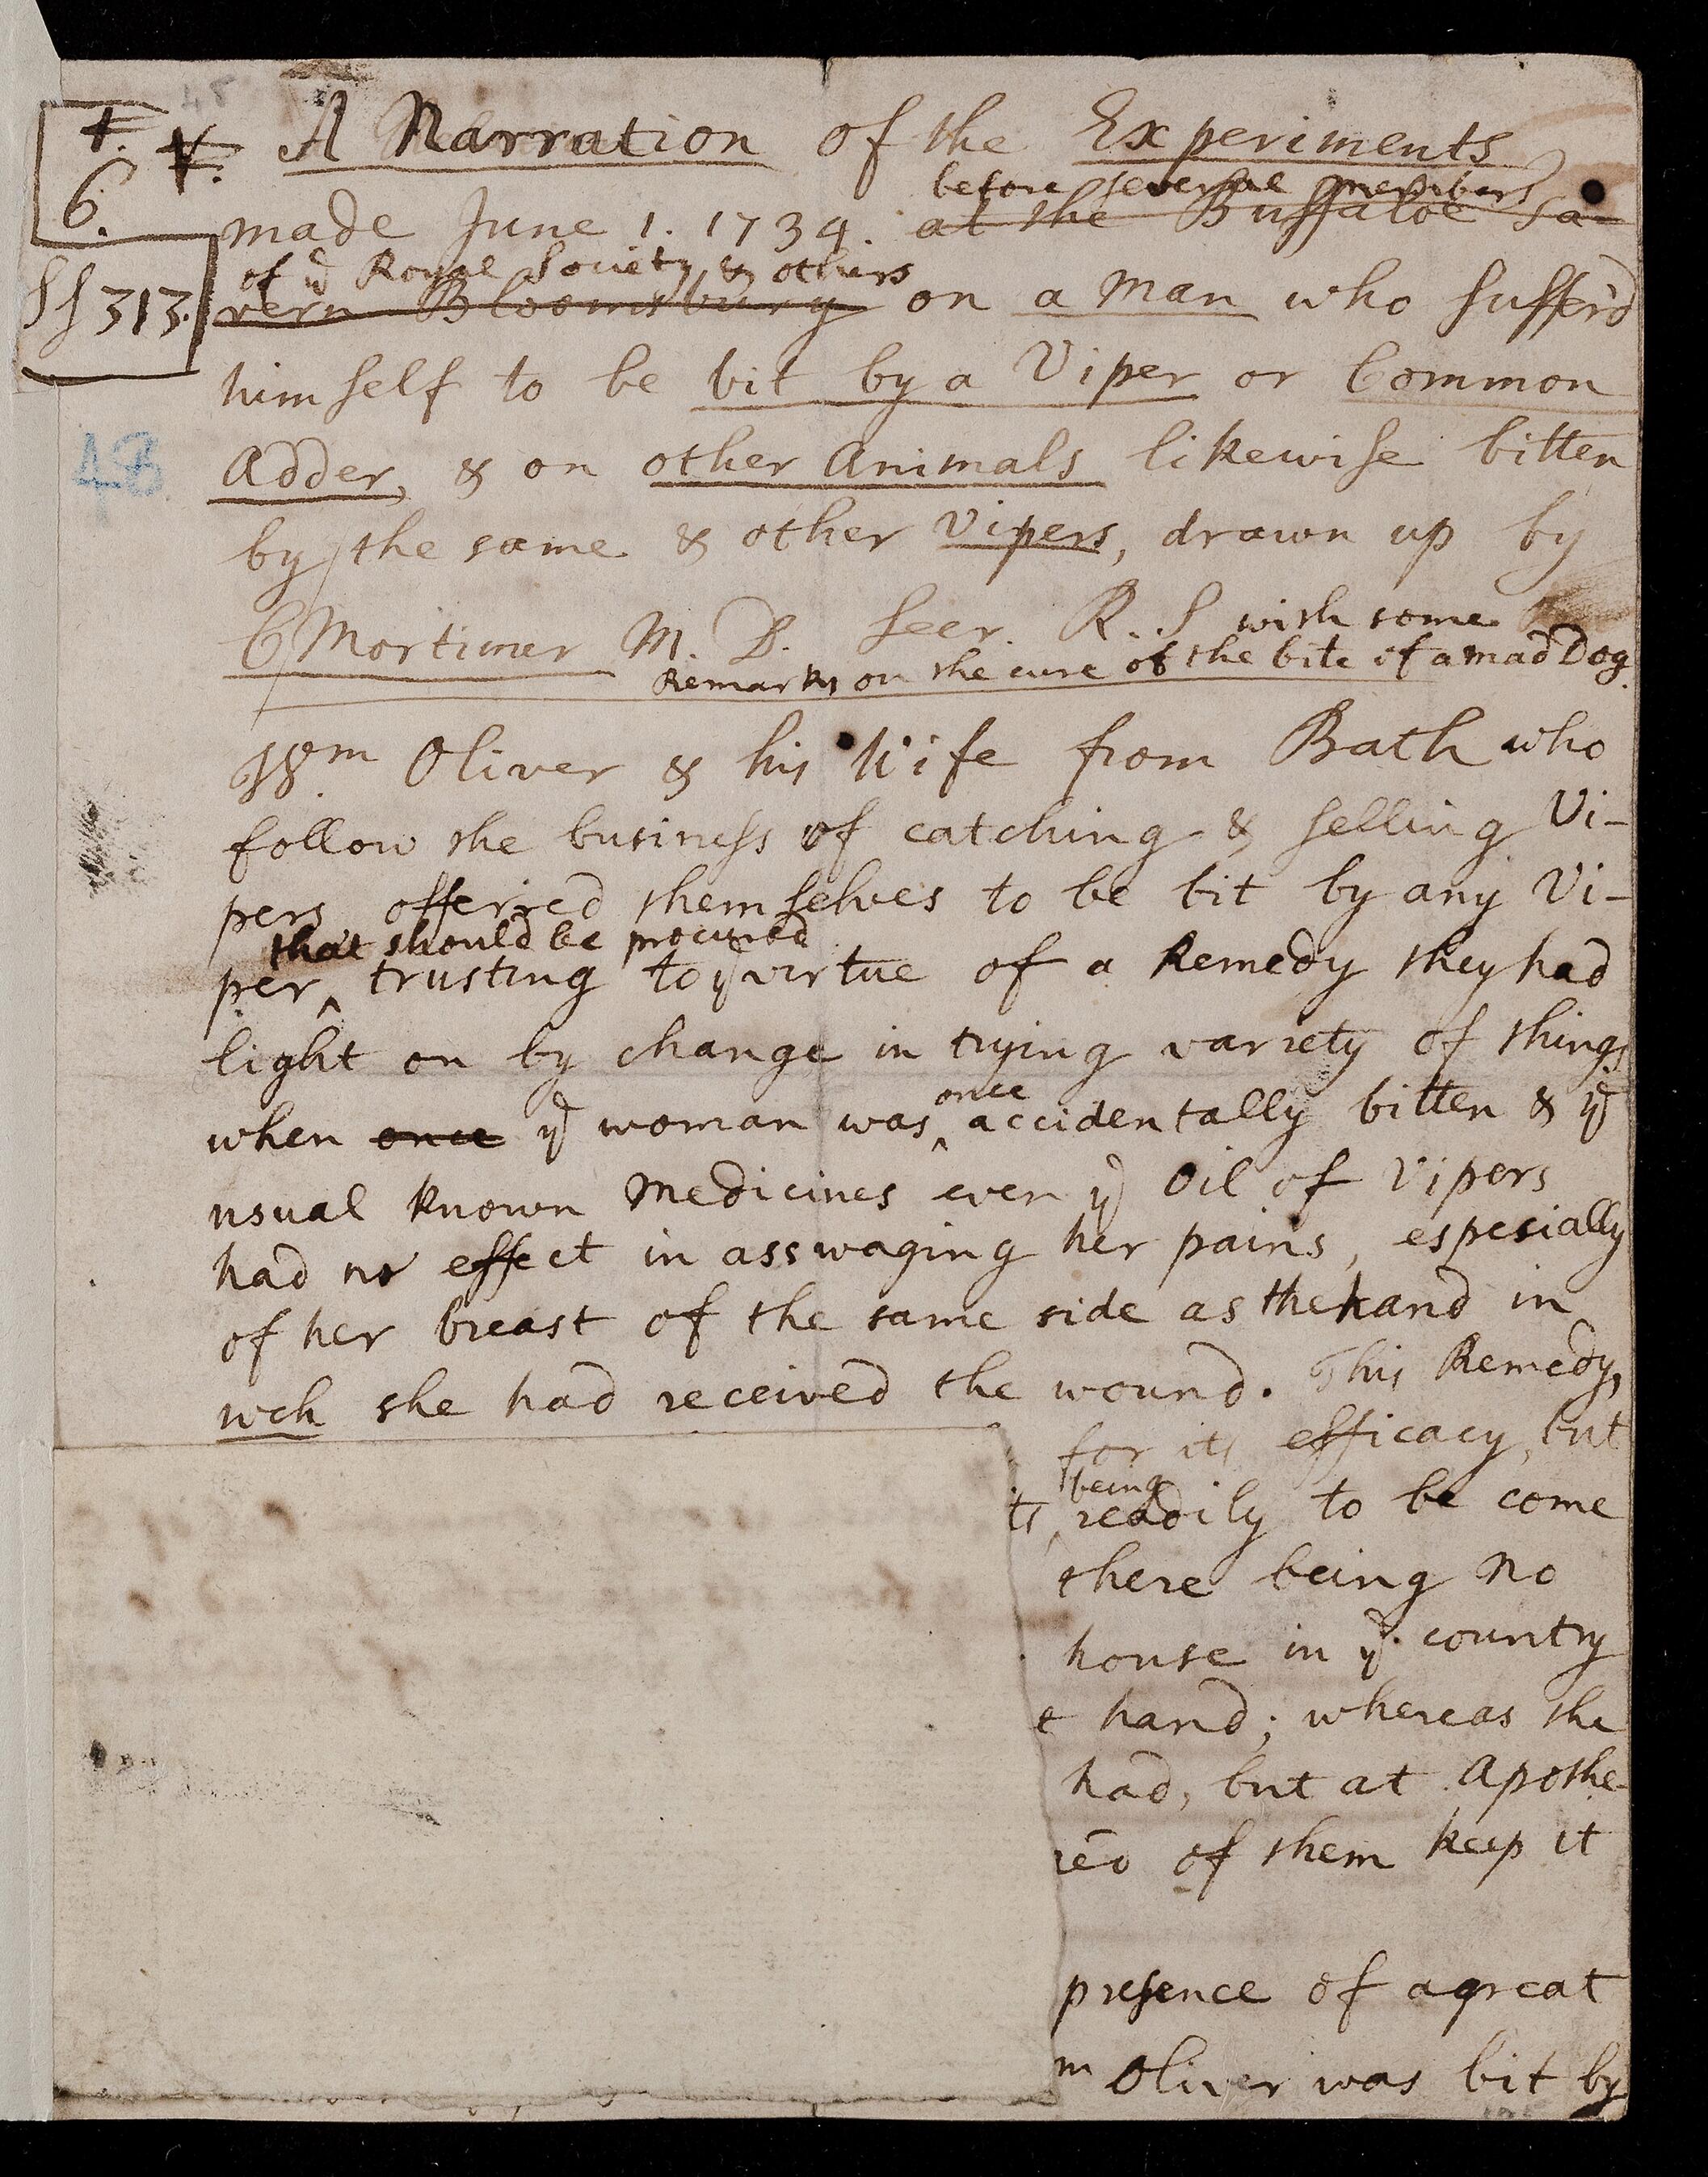 45
F.
6.
V.
A Narration of the Experiments
before several members
made June 1. 1734. at the Buffaloe Ta-
of ye Royal Society, & others
vern Bloomsbury on a Man who suffer'd
SS 313.
himself to be bit by a Viper or Common
Adder, & on other Animals likewise bitten
by the same & other Vipers, drawn up by
C Mortimer M. D. Secr. R. S with some
Remarks on the cure of the bite of a mad Dog.
Wm Oliver & his Wife from Bath who
follow the business of catching & selling Vi-
pers offerred themselves to be bit by any Vi-
that should be procured
per ‸ trusting to ye virtue of a Remedy they had
light on by change in trying variety of things
once
when once ye woman was ‸ accidentally bitten & ye
usual known Medicines even ye Oil of Vipers
had no effect in asswaging her pains, especially
of her breast of the same side as the hand in
wch she had received the wound. This Remedy,
for its efficacy, but
being
ts ‸ readily to be come
there being no
house in ye country
t hand; whereas the
had, but at Apothe-
red of them keep it
presence of a great
m Oliver was bit by